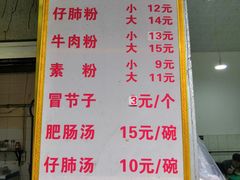 仔肺粉 小 12元
大 14元
牛肉粉 小 13元
大 15元
素 粉 小 9元
大 11元
冒节子 3元/个
肥肠汤 15元/碗
仔肺汤 10元/碗